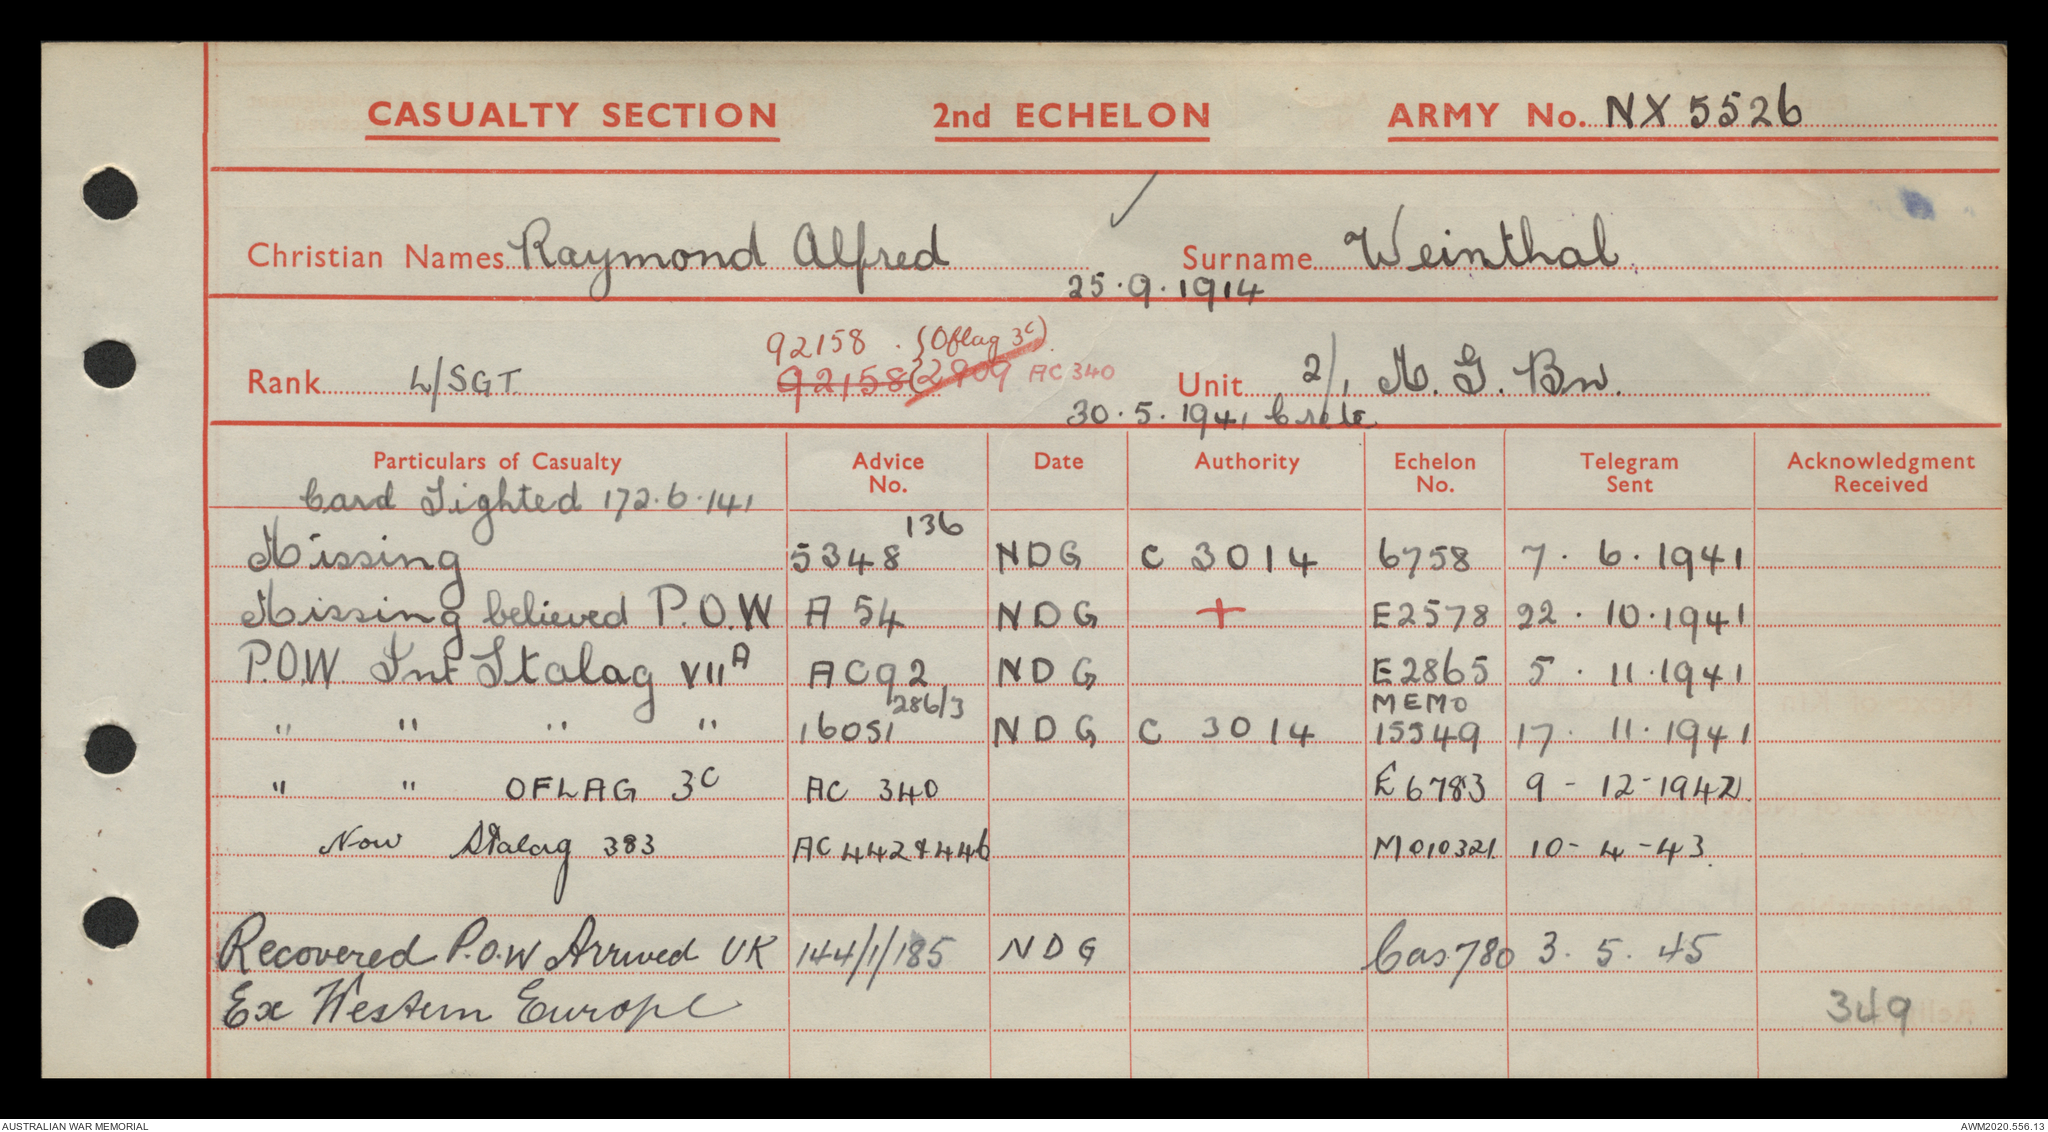 CASUALTY SECTION 2nd ECHELON ARMY No. NX 5526
Christian Names Raymond Alfred Surname Weinthal
25.9.1914
92158 . (Oflag 3C)
Rank L/SGT 92158 (2909 AC 340 Unit 2/1 M. G. Bn.
30.5.1941 Crete
Particulars of Casualty Advice No. Date Authority Echelon No. Telegram Sent Acknowledgment Received
Card Sighted 172.6.141
136
Missing 5348 NDG C 3014 6758 7.6.1941
Missing believed P.O.W A 54 NDG + E2578 22.10.1941
P.O.W. Int Stalag VIIA AC92 NDG E2865 5.11.1941
286/3 MEMO
" " " " 16051 NDG C 3014 15549 17.11.1941
" " OFLAG 3C AC 340 E6783 9-12-1942
Now Stalag 383 AC 442 & 446 M010321 10-4-43.
Recovered P.O.W Arrived UK 144/1/185 NDG Cas 780 3.5.45
Ex Western Europe 349
AUSTRALIAN WAR MEMORIAL AWM2020.556.13